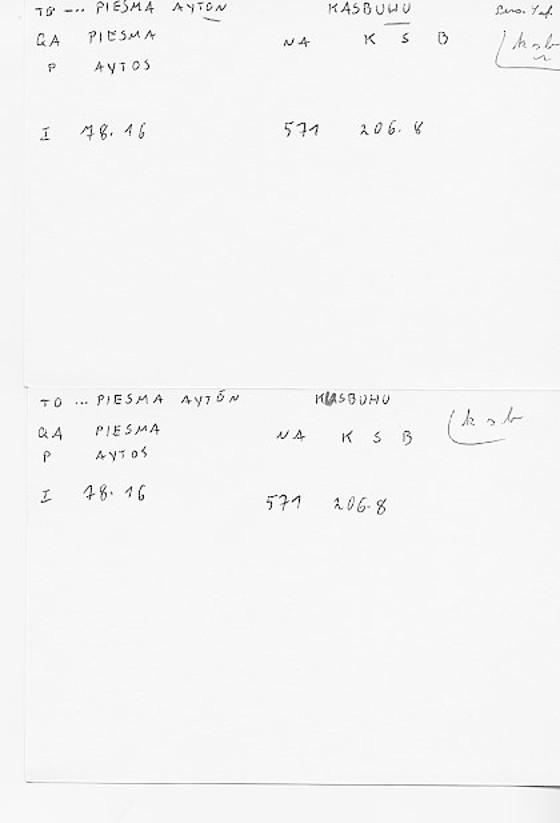 TO --- PIESMA AYTŌN KASBUHU
QA PIESMA NA K S B
P AYTOS
I 78.16 571 206.8
TO ... PIESMA AYTŌN KASBUHU
QA PIESMA NA K S B
P AYTOS
I 78.16 571 206.8